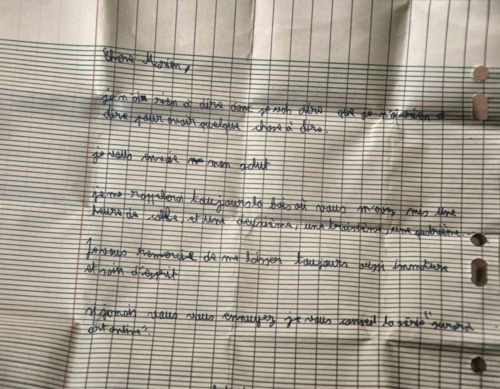 Chère Marion,
je n'ai rien à dire donc je vais dire que je n'ai rien à
dire pour avoir quelque chose à dire.
je vous envoie mon salut
je me rappellerai toujours la fois où vous m'avez mis une
heure de colle et une deuxième, une troisième, une quatrième...
je vous remercie de me laisser toujours aussi immature
et d'esprit
si jamais vous vous ennuyez je vous conseil la série "sword
art online".